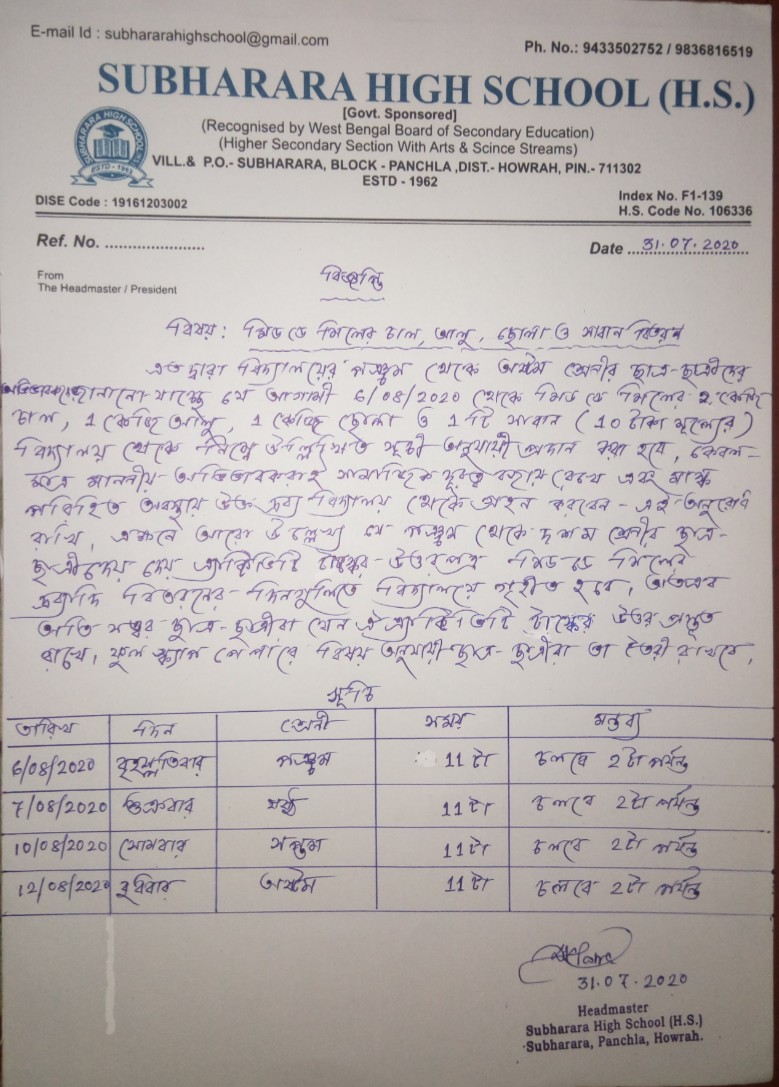 E-mail Id : subhararahighschool@gmail.com
Ph. No.: 9433502752 / 9836816519
SUBHARARA HIGH SCHOOL (H.S.)
[Govt. Sponsored]
(Recognised by West Bengal Board of Secondary Education)
(Higher Secondary Section With Arts & Scince Streams)
VILL.& P.O.- SUBHARARA, BLOCK - PANCHLA ,DIST.- HOWRAH, PIN.- 711302
ESTD - 1962
SUBHARARA HIGH SCHOOL
ESTD - 1962
DISE Code : 19161203002
Index No. F1-139
H.S. Code No. 106336
Ref. No. ........................
Date ...31.07.2020...
From
The Headmaster / President
বিজ্ঞপ্তি
বিষয় : মিড ডে মিলের চাল, আলু, ছোলা ও সাবান বিতরণ
এতদ্বারা বিদ্যালয়ের পঞ্চম থেকে অষ্টম শ্রেনীর ছাত্র-ছাত্রীদের
অভিভাবকদের জানানো যাচ্ছে যে আগামী 6/08/2020 থেকে মিড ডে মিলের 2 কেজি
চাল, 1 কেজি আলু, 1 কেজি ছোলা ও 1 টি সাবান (10 টাকা মূল্যের)
বিদ্যালয় থেকে নিম্নে উল্লিখিত সূচী অনুযায়ী প্রদান করা হবে, কেবল-
মাত্র মাননীয় অভিভাবকরাই সামাজিক দূরত্ব বজায় রেখে এবং মাস্ক
পরিহিত অবস্থায় উক্ত দ্রব্য বিদ্যালয় থেকে গ্রহন করবেন - এই অনুরোধ
রাখি, এক্ষনে আরো উল্লেখ্য যে পঞ্চম থেকে দশম শ্রেনীর ছাত্র-
ছাত্রীদের দেয় অ্যাক্টিভিটি টাস্কের উত্তরপত্র মিড ডে মিলের
দ্রব্যাদি বিতরনের দিনগুলিতে বিদ্যালয়ে গৃহীত হবে, অতএব
অতি সত্বর ছাত্র-ছাত্রীরা যেন ঐ অ্যাক্টিভিটি টাস্কের উত্তর প্রস্তুত
রাখে, ফুল স্ক্যাপ পেপারে বিষয় অনুযায়ী ছাত্র-ছাত্রীরা তা তৈরী রাখবে,
সূচি
তারিখ দিন শ্রেনী সময় মন্তব্য
6/08/2020 বৃহস্পতিবার পঞ্চম 11 টা চলবে 2টা পর্যন্ত
7/08/2020 শুক্রবার ষষ্ঠ 11 টা চলবে 2টা পর্যন্ত
10/08/2020 সোমবার সপ্তম 11 টা চলবে 2টা পর্যন্ত
12/08/2020 বুধবার অষ্টম 11 টা চলবে 2টা পর্যন্ত
31.07.2020
Headmaster
Subharara High School (H.S.)
Subharara, Panchla, Howrah.